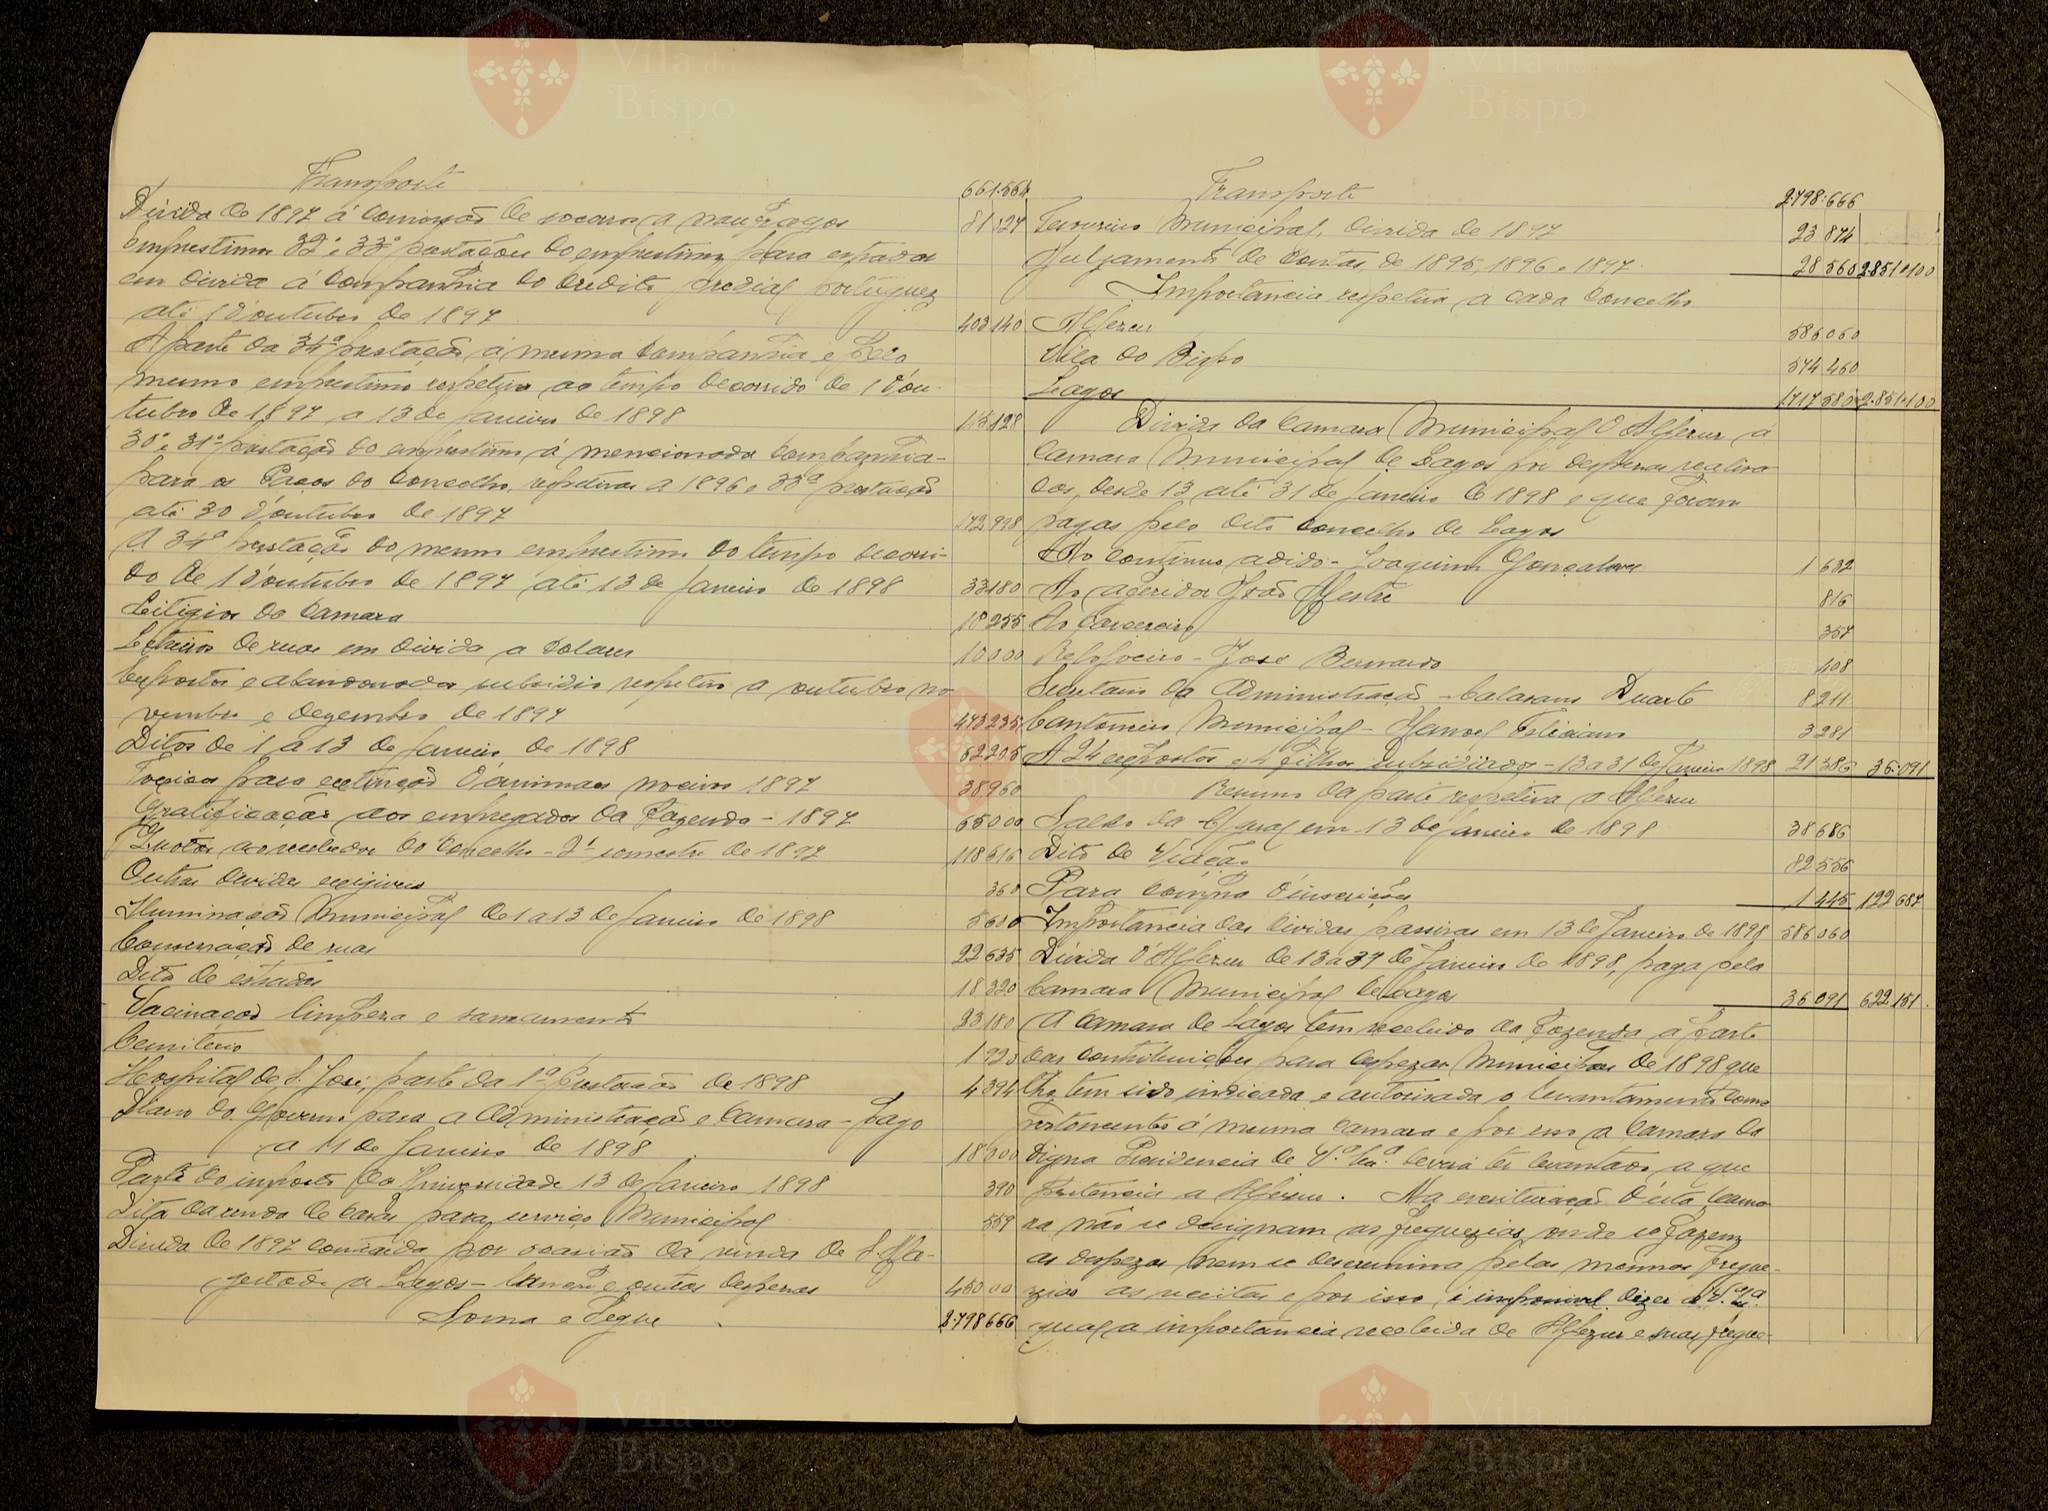 Transporte 661.564
Divida de 1897 á Comissão de socorros a naufragos 81 524
Emprestimos 32ª e 33ª prestações do emprestimo para estradas
em divida á Companhia do Credito predial portuguez
até 1 d'outubro de 1897 403 140
A parte da 34ª prestação á mesma Companhia e pelo
mesmo emprestimo respetiva ao tempo decorrido de 1 d'ou-
tubro de 1897 a 13 de Janeiro de 1898
30ª e 31ª prestação do emprestimo á mencionada Companhia-
para os Paços do Concelho, respetivas a 1896 e 33ª prestação
até 30 d'outubro de 1897 172,998
A 34ª prestação do mesmo emprestimo do tempo decorri-
do de 1 d'outubro de 1897 até 13 de Janeiro de 1898 33180
Litigios da Camara 10 255
Letreiros de ruas em divida a 10000
Expostos e abandonados subsidio respetivo a outubro, no
vembro e dezembro de 1897 473235
Ditos de 1 a 13 de Janeiro de 1898 62205
Toxicos para extinção d'animaes nocivos 1897 38960
Gratificações aos empregados da Fazenda - 1897 65000
Quotas ao recebedor do Concelho - 2º semestre de 1897 118616
Outras dividas exigiveis 360
Illuminação Municipal de 1 a 13 de Janeiro de 1898 5600
Conservação de ruas 22 635
Dita de estradas 18 320
Vacinações limpeza e saneamento 23180
Cemiterio 1 220
Hospital de S. José, parte da 1ª prestação de 1898 4 394
Diario do Governo para a Administração e Camara - pago
a 11 de Janeiro de 1898 18 000
Parte do imposto da Universidade 13 de Janeiro 1898 390
Dita da renda de casas para serviço Municipal 559
Divida de 1897 contraida por ocasião da vinda de S. Ma-
gestade a Lagos - e outras despezas 45000
Soma e Segue 2.798 666
Transporte 2798:666
Tesoureiro Municipal, divida de 1897 23 874
Julgamento de contas, de 1895, 1896 e 1897 28 560 2851.100
Importancia respetiva a cada Concelho
Aljezur 586060
Vila do Bispo 574 460
Lagos 1717 580 2.851.100
Divida da Camara Municipal d'Aljezur á
Camara Municipal de Lagos por despezas realisa
das, desde 13 até 31 de Janeiro de 1898 e que foram
pagas pelo dito Concelho de Lagos
Ao continuo adido - Joaquim Gonçalves 1 632
Ao aferidor João Mestre 816
Ao Carcereiro 357
Relojoeiro - José Bernardo 108
Secretario da Administração - Calazans Duarte 8211
Cantoneiro Municipal - Manoel Feliciano 3 281
A 24 expostos e 4 filhos subsidiados - 13 a 31 de Janeiro 1898 21 386 36:091
Resumo da parte respetiva a Aljezur
Saldo da C/ geral em 13 de Janeiro de 1898 38 686
Dito de Viação 82 556
Para d'inscrições 1 445 122 687
Importancia das dividas passivas em 13 de Janeiro de 1898 586 060
Divida d'Aljezur de 13 a 31 de Janeiro de 1898, paga pela
Camara Municipal de Lagos 36 091 622 151
A Camara de Lagos tem recebido da Fazenda a parte
das contribuições para despezas Municipaes de 1898 que
lhe tem sido indicada e autorisada o levantamento como
pertencente á mesma Camara e por isso a Camara da
digna Presidencia de V.ª Ex.ª deverá ter levantado, a que
pertencia a Aljezur. Na escrituração d'esta Cama
ra não se designam as freguezias, onde se fazem
as despezas nem se descrimina pelas mesmas fregue-
zias as receitas e por isso, é impossivel dizer a V.ª Ex.ª
qual a importancia recebida de Aljezur e suas fregue-
Vila do
Bispo
Vila do
Bispo
Vila do
Bispo
Vila do
Bispo